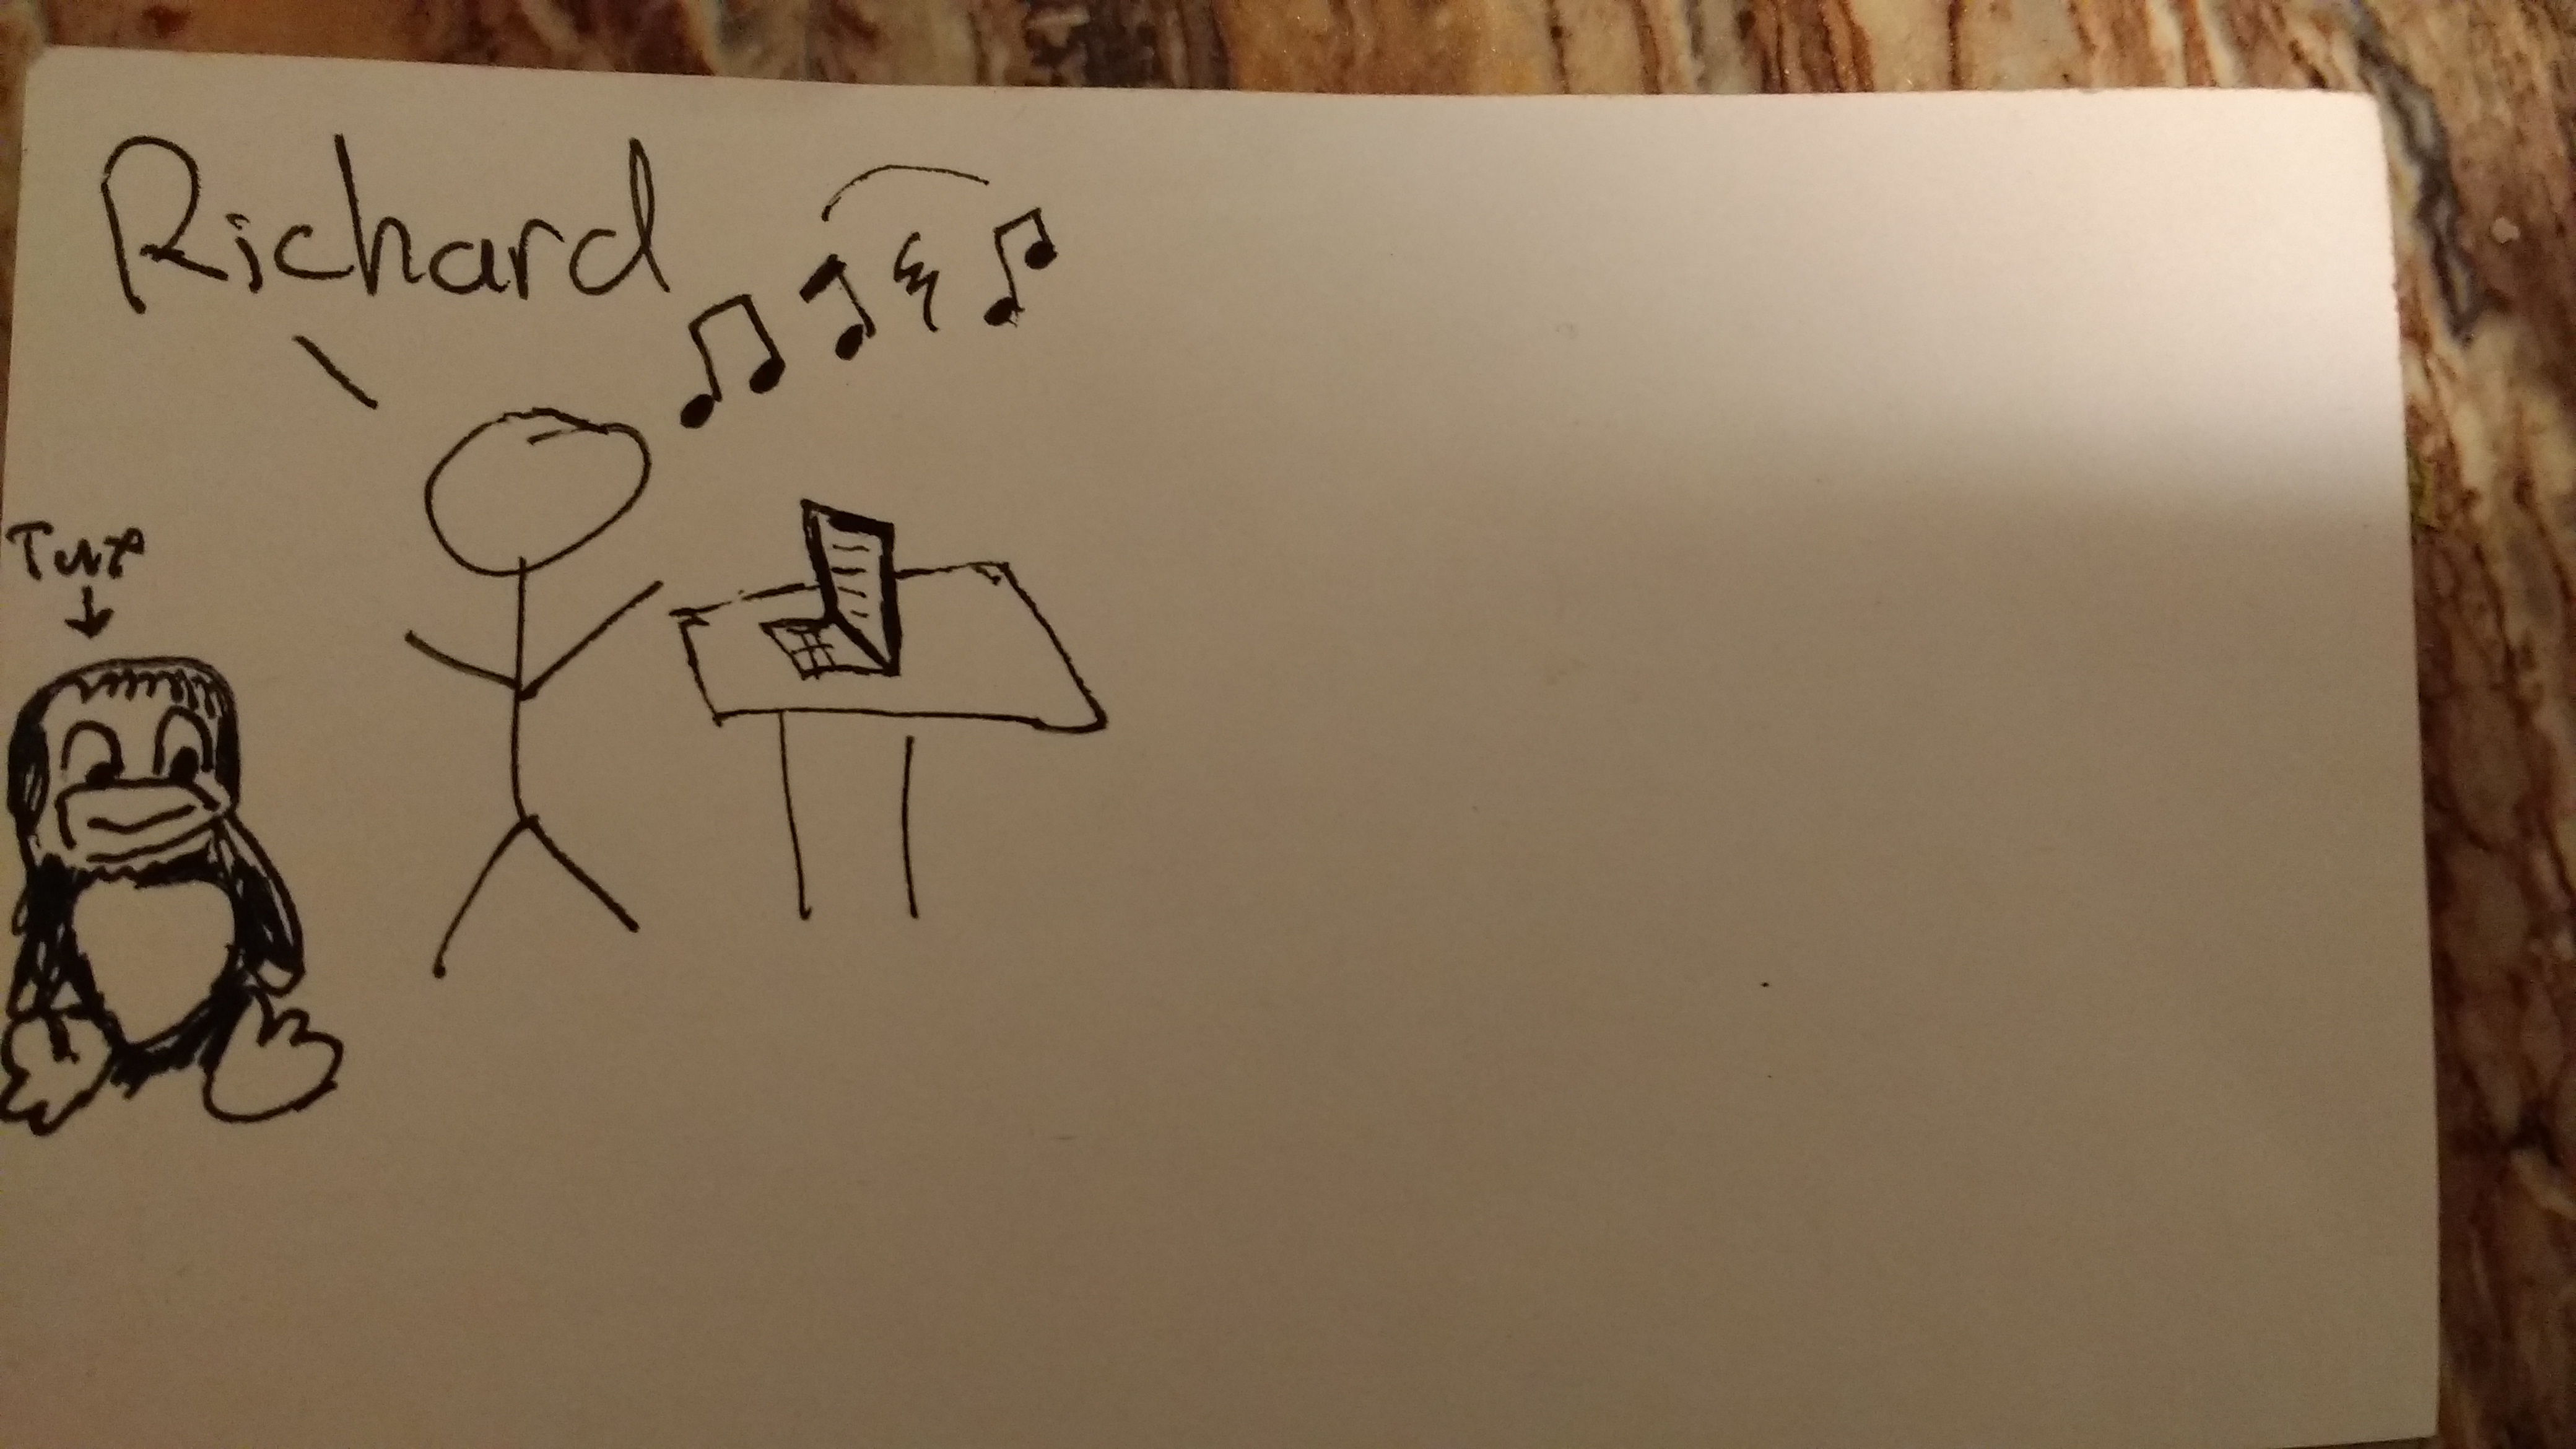 Richard
Tux